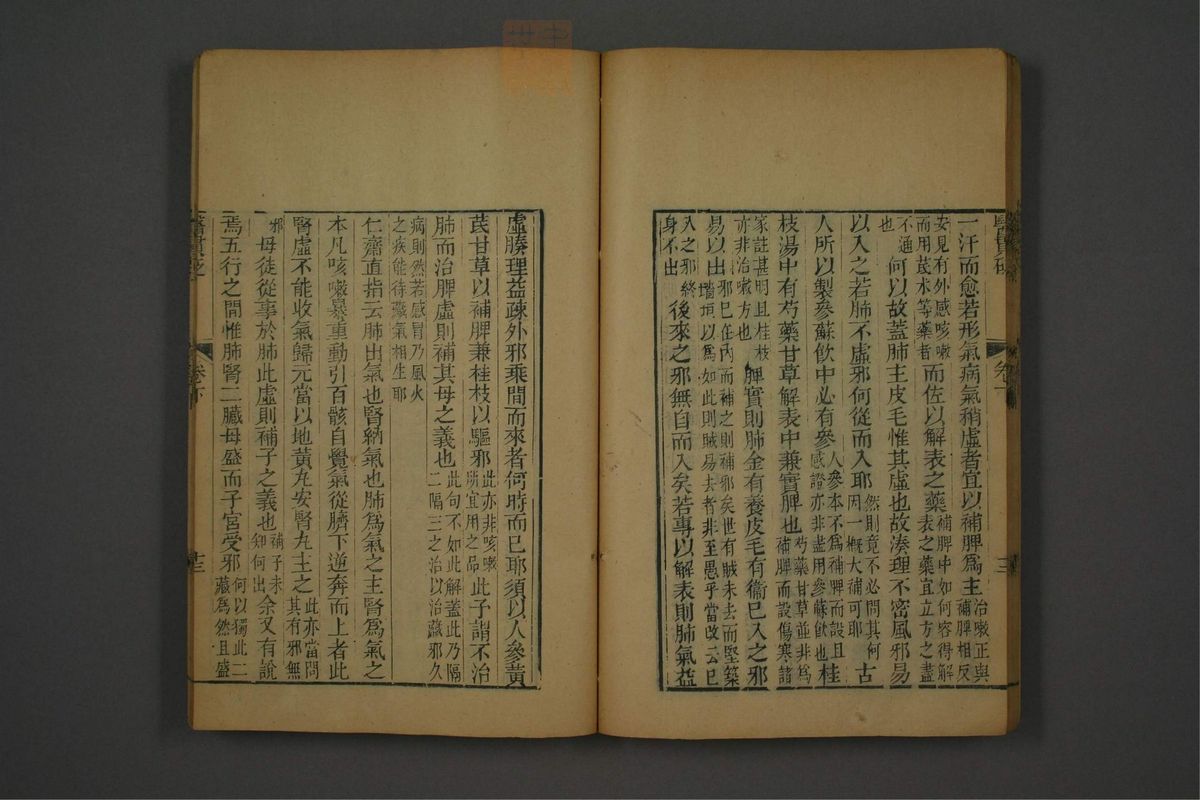 醫貫砭 卷下 三
一汗而愈若形氣病氣稍虛者宜以補脾爲主治嗽正與補脾相反
安見有外感咳嗽而用芪朮等藥者而佐以解表之藥補脾中如何容得解表之藥宜立方之盡
不通也何以故蓋肺主皮毛惟其虛也故湊理不密風邪易
以入之若肺不虛邪何從而入耶然則竟不必問其何因一概大補可耶古
人所以製參蘇飲中必有參人參本不爲補脾而設且感證亦非盡用參蘇飲也桂
枝湯中有芍藥甘草解表中兼實脾也芍藥甘草並非爲補脾而設傷寒諸
家註甚明且桂枝亦非治嗽方也脾實則肺金有養皮毛有衞已入之邪
易以出邪已在內而補之則補邪矣世有賊未去而堅築墻垣以爲如此則賊易去者非至愚乎當改云已
入之邪終身不出後來之邪無自而入矣若專以解表則肺氣益
虛腠理益疎外邪乘間而來者何時而已耶須以人參黃
芪甘草以補脾兼桂枝以驅邪此亦非咳嗽所宜用之品此子謂不治
肺而治脾虛則補其母之義也此句不如此解蓋此乃隔二隔三之治以治臟邪久
病則然若感冒乃風火之疾能待臟氣相生耶
仁齋直指云肺出氣也腎納氣也肺爲氣之主腎爲氣之
本凡咳嗽暴重動引百骸自覺氣從臍下逆奔而上者此
腎虛不能收氣歸元當以地黃丸安腎丸主之此亦當問其有邪無
邪母徒從事於肺此虛則補子之義也補子未知何出余又有說
焉五行之間惟肺腎二臟母盛而子宮受邪何以獨此二臟爲然且盛
醫貫砭 卷下